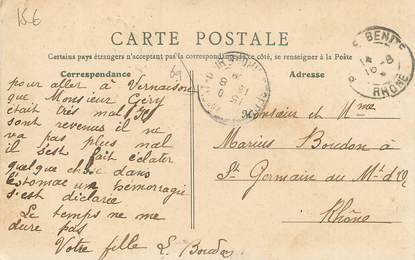 156
CARTE POSTALE
Certains pays étrangers n'acceptant pas la correspondance de ce côté, se renseigner à la Poste
Correspondance
Adresse
Pte BENITE
RHONE
pour aller à Vernaison
que Monsieur Géry
était très mal
sont revenus il ne
va pas plus mal
il s'est fait éclater
quelque chose dans
l'estomac un hémorragie
s'est diclarie
Le temps ne me
dure pas
Votre fille L. Boudon
Monsieur et Mme
Marius Boudon à
St Germain du Mt d'Or
Rhône